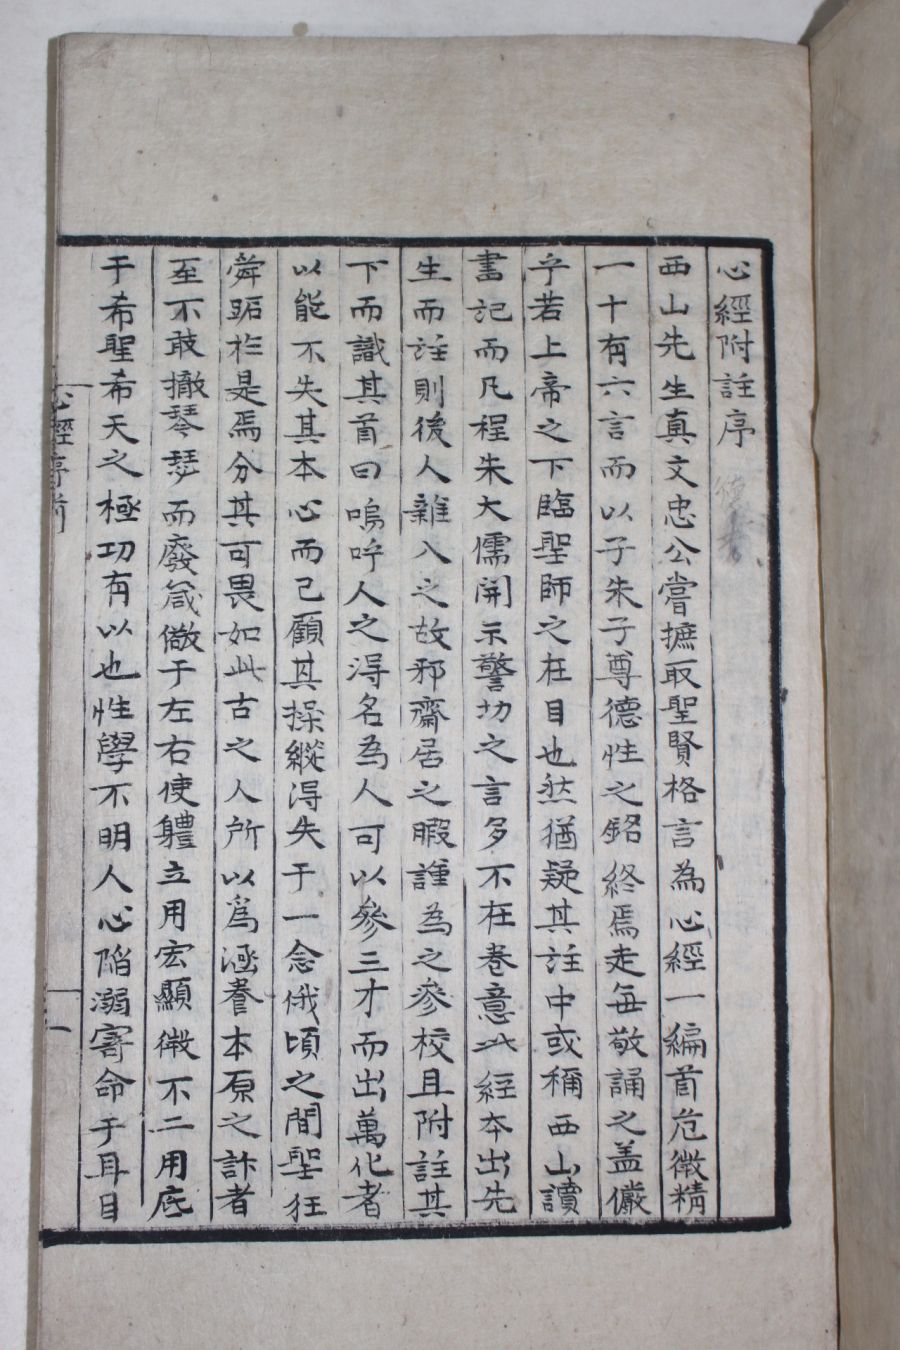 心經附註序
西山先生真文忠公嘗摭取聖賢格言為心經一編首危微精
一十有六言而以子朱子尊德性之銘終焉走每敬誦之盖儼
乎若上帝之下臨聖師之在目也然猶疑其註中或稱西山讀
書記而凡程朱大儒開示警切之言多不在卷意此經本出先
生而註則後人雜入之故邪齋居之暇謹為之參校且附註其
下而識其首曰嗚呼人之得名為人可以參三才而出萬化者
以能不失其本心而已顧其操縱得失于一念俄頃之間聖狂
舜跖於是焉分其可畏如此古之人所以爲涵養本原之計者
至不敢撤琴瑟而廢箴儆于左右使體立用宏顯微不二用底
于希聖希天之極功有以也性學不明人心陷溺寄命于耳目
心經序
一